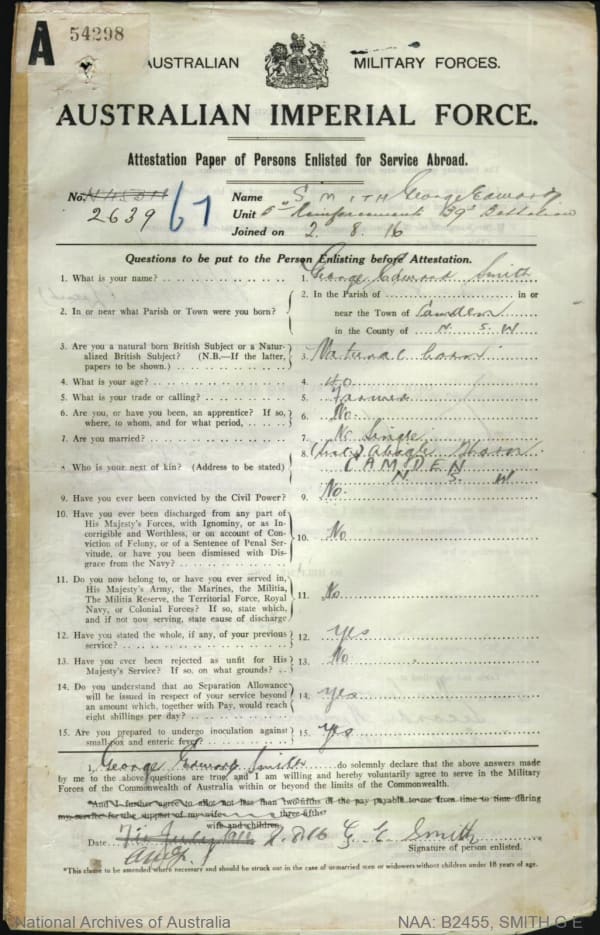 A 54298
AUSTRALIAN MILITARY FORCES.
AUSTRALIAN IMPERIAL FORCE.
Attestation Paper of Persons Enlisted for Service Abroad.
No. 2639 67
Name SMITH George Edward
Unit 5th Reinforcement 39th Battalion
Joined on 2.8.16
Questions to be put to the Person Enlisting before Attestation.
1. What is your name? 1. George Edward Smith
2. In or near what Parish or Town were you born? 2. In the Parish of in or
near the Town of Camden
in the County of N.S.W
3. Are you a natural born British Subject or a Natu-
ralized British Subject? (N.B.—If the latter,
papers to be shown.) 3. Natural born
4. What is your age? 4. 40
5. What is your trade or calling? 5. Farmer
6. Are you, or have you been, an apprentice? If so,
where, to whom, and for what period, 6. No.
7. Are you married? 7. No Single
Who is your next of kin? (Address to be stated) 8.
CAMDEN
N S W
9. Have you ever been convicted by the Civil Power? 9. No.
10. Have you ever been discharged from any part of
His Majesty's Forces, with Ignominy, or as In-
corrigible and Worthless, or on account of Con-
viction of Felony, or of a Sentence of Penal Ser-
vitude, or have you been dismissed with Dis-
grace from the Navy? 10. No
11. Do you now belong to, or have you ever served in,
His Majesty's Army, the Marines, the Militia,
The Militia Reserve, the Territorial Force, Royal
Navy, or Colonial Forces? If so, state which,
and if not now serving, state cause of discharge 11. No
12. Have you stated the whole, if any, of your previous
service? 12. yes
13. Have you ever been rejected as unfit for His
Majesty's Service? If so, on what grounds? 13. No
14. Do you understand that no Separation Allowance
will be issued in respect of your service beyond
an amount which, together with Pay, would reach
eight shillings per day? 14. yes
15. Are you prepared to undergo inoculation against
small-pox and enteric fever 15. yes
I, George Edward Smith do solemnly declare that the above answers made
by me to the above questions are true, and I am willing and hereby voluntarily agree to serve in the Military
Forces of the Commonwealth of Australia within or beyond the limits of the Commonwealth.
*And I further agree to allot not less than two-fifths of the pay payable to me from time to time during
my service for the support of my wife three-fifths*
wife and children.
Date 2.8.16 G. E. Smith
Signature of person enlisted.
*This clause to be amended where necessary and should be struck out in the case of unmarried men or widowers without children under 18 years of age.
National Archives of Australia NAA: B2455, SMITH G E